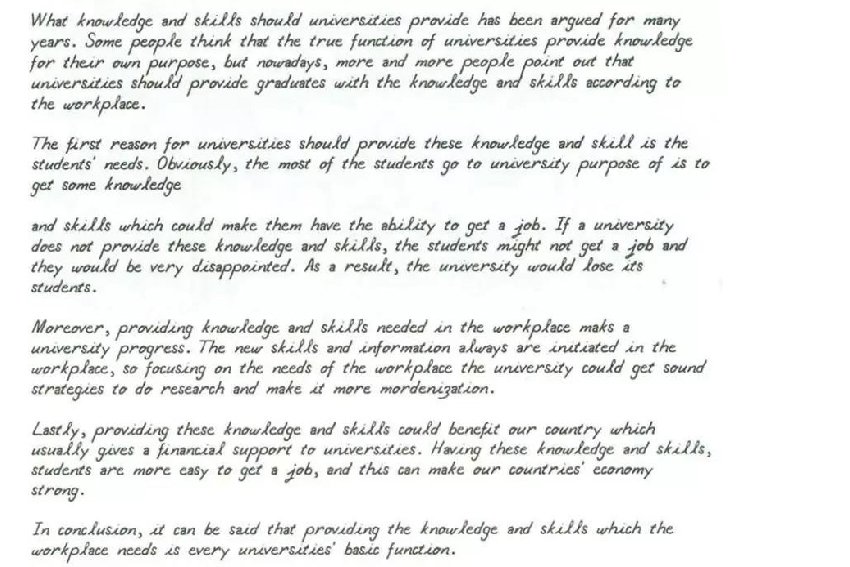 What knowledge and skills should universities provide has been argued for many
years. Some people think that the true function of universities provide knowledge
for their own purpose, but nowadays, more and more people point out that
universities should provide graduates with the knowledge and skills according to
the workplace.
The first reason for universities should provide these knowledge and skill is the
students' needs. Obviously, the most of the students go to university purpose of is to
get some knowledge
and skills which could make them have the ability to get a job. If a university
does not provide these knowledge and skills, the students might not get a job and
they would be very disappointed. As a result, the university would lose its
students.
Moreover, providing knowledge and skills needed in the workplace maks a
university progress. The new skills and information always are initiated in the
workplace, so focusing on the needs of the workplace the university could get sound
strategies to do research and make it more mordenization.
Lastly, providing these knowledge and skills could benefit our country which
usually gives a financial support to universities. Having these knowledge and skills,
students are more easy to get a job, and this can make our countries' economy
strong.
In conclusion, it can be said that providing the knowledge and skills which the
workplace needs is every universities' basic function.